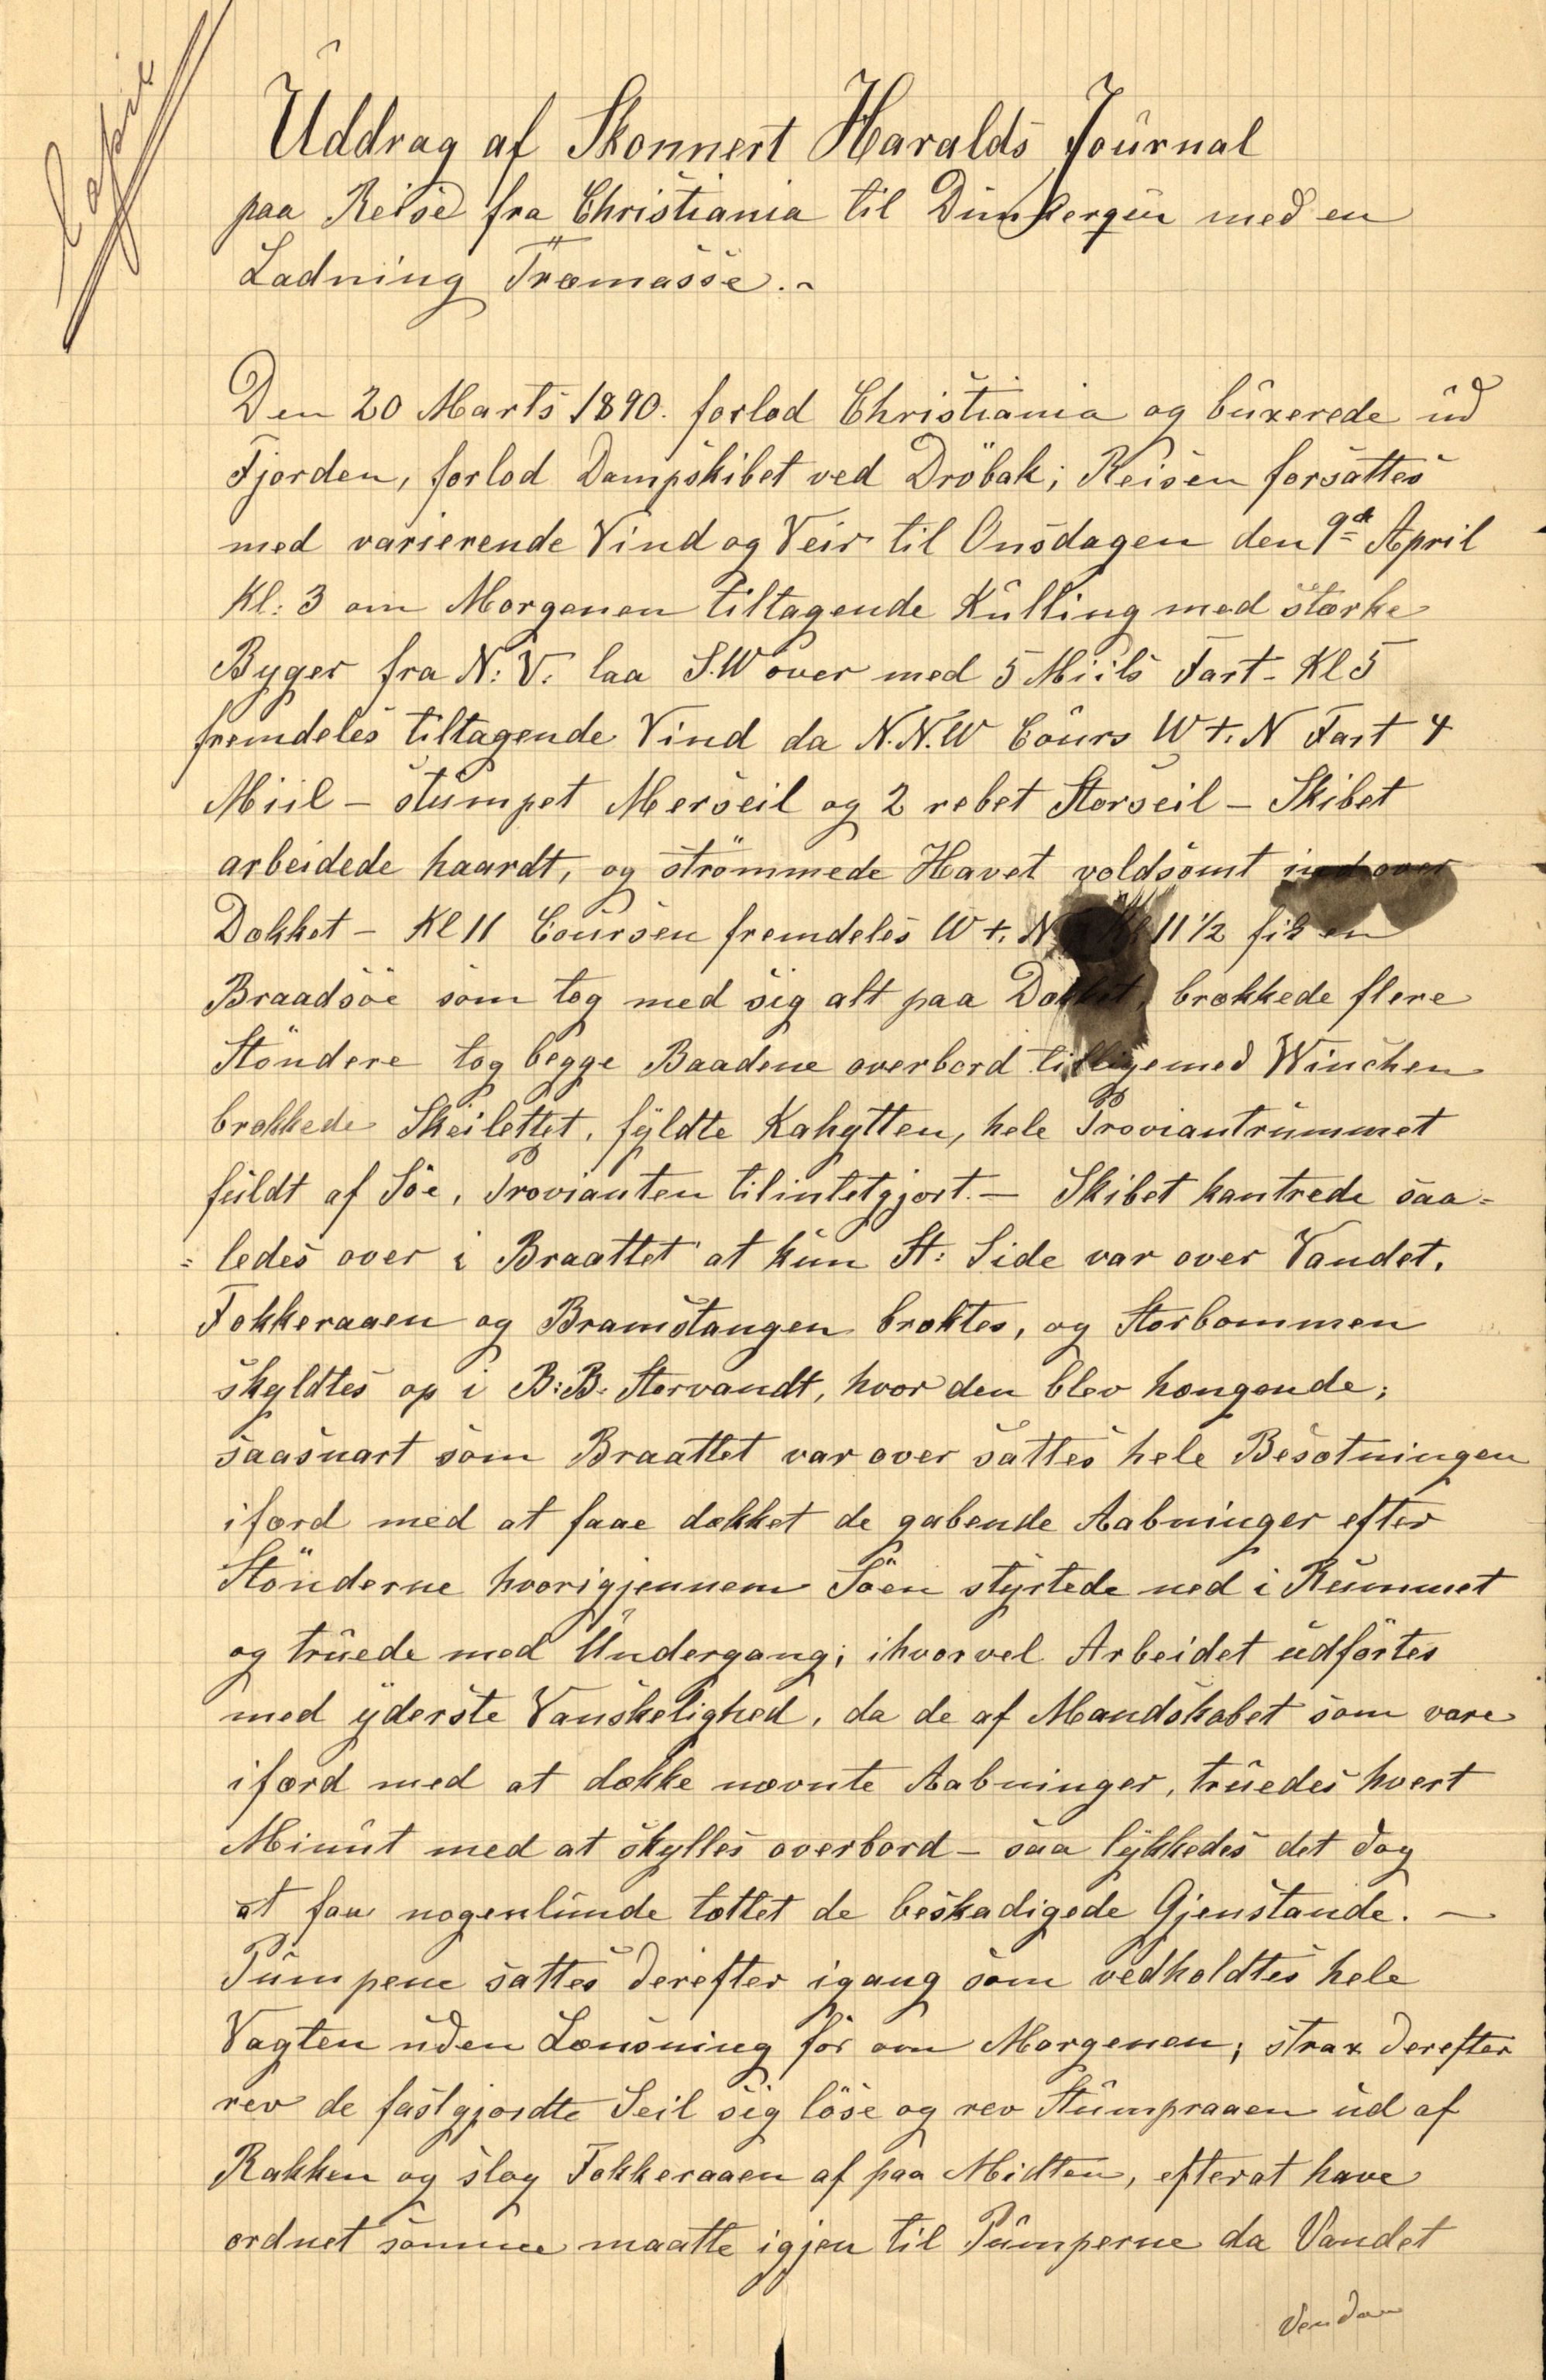 Kopie
Uddrag af Skonnert Haralds Journal
paa Reise fra Christiania til Dunkerque med en
Ladning Træmasse.
Den 20 Marts 1890. forlod Christiania og buxerede ud
Fjorden, forlod Dampskibet ved Dröbak; Reisen forsattes
med varierende Vind og Veir til Onsdagen den 9de April
Kl: 3 om Morgenen tiltagende Kulling med stærke
Byger fra N: V. laa S.W over med 5 Miils Fart - Kl 5
fremdeles tiltagende Vind da N.N.W Cours W t. N Fart 4
Miil - stumpet Merseil og 2 rebet Storseil - Skibet
arbeidede haardt, og strömmede Havet voldsomt ind over
Dækket - Kl 11 Coursen fremdeles W t. N Kl 11 1/2 fik en
Braadsöe som tog med sig alt paa Dækket, brækkede flere
Stöndere tog begge Baadene overbord tilligemed Winchen
brækkede Skeilettet, fyldte Kahytten, hele Proviantrummet
fuldt af Söe, Provianten tilintetgjort. - Skibet kantrede saa=
=ledes over i Braattet at kun St: Side var over Vandet.
Fokkeraaen og Bramstangen bræktes, og Storbommen
skyldtes op i B:B: Storvandt, hvor den blev hængende;
saasnart som Braattet var over sattes hele Besætningen
ifærd med at faae dækket de gabende Aabninger efter
Stönderne hvorigjennem Söen styrtede ned i Rummet
og truede med Undergang; ihvorvel Arbeidet udförtes
med yderste Vanskelighed, da de af Mandskabet som vare
ifærd med at dække nævnte Aabninger, truedes hvert
Minut med at skylles overbord - saa lykkedes det dog
at faa nogenlunde tættet de beskadigede Gjenstande. -
Pumpene sattes derefter igang som vedholdtes hele
Vagten uden Lænsning för om Morgenen; strax derefter
rev de fastgjordte Seil sig löse og rev Stumpraaen ud af
Rakken og slog Fokkeraaen af paa Midten, efterat have
ordnet samme maatte igjen til Pumperne da Vandet